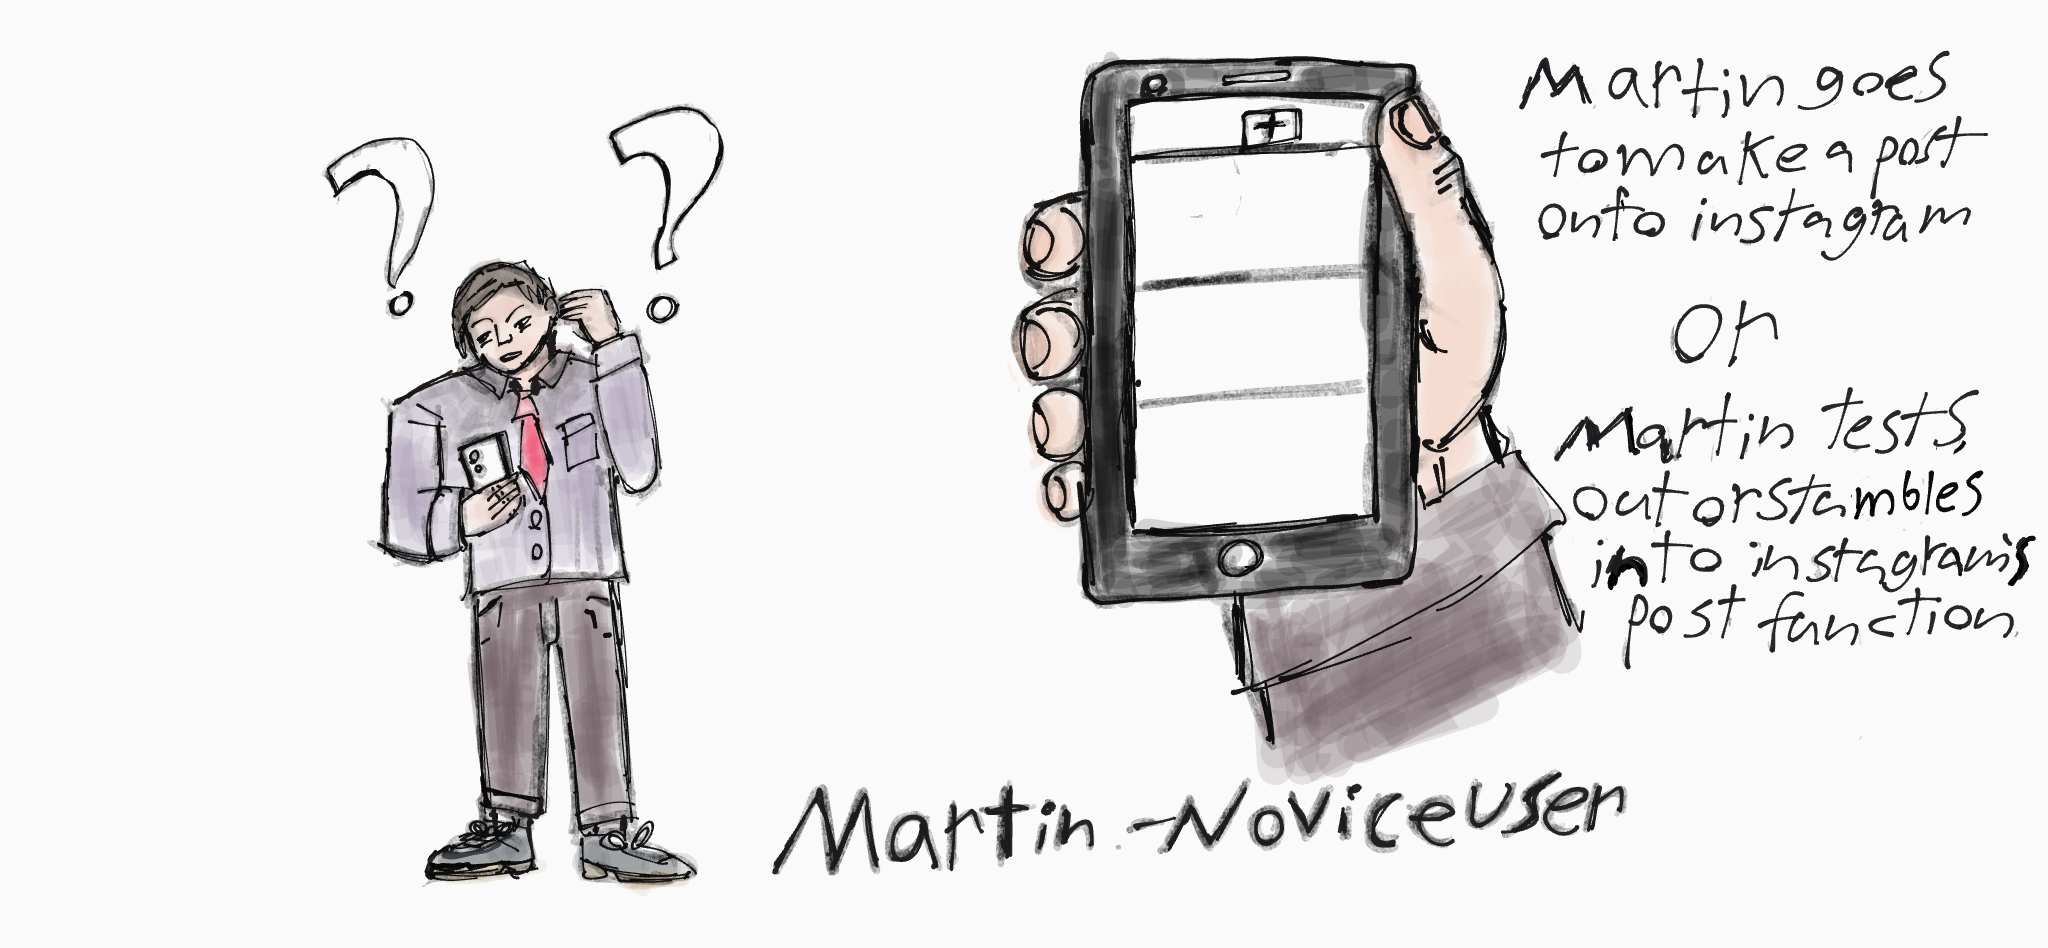 Martin goes
to make a post
onto instagram
or
Martin tests
out or stumbles
into instagram's
post function
Martin - Novice user